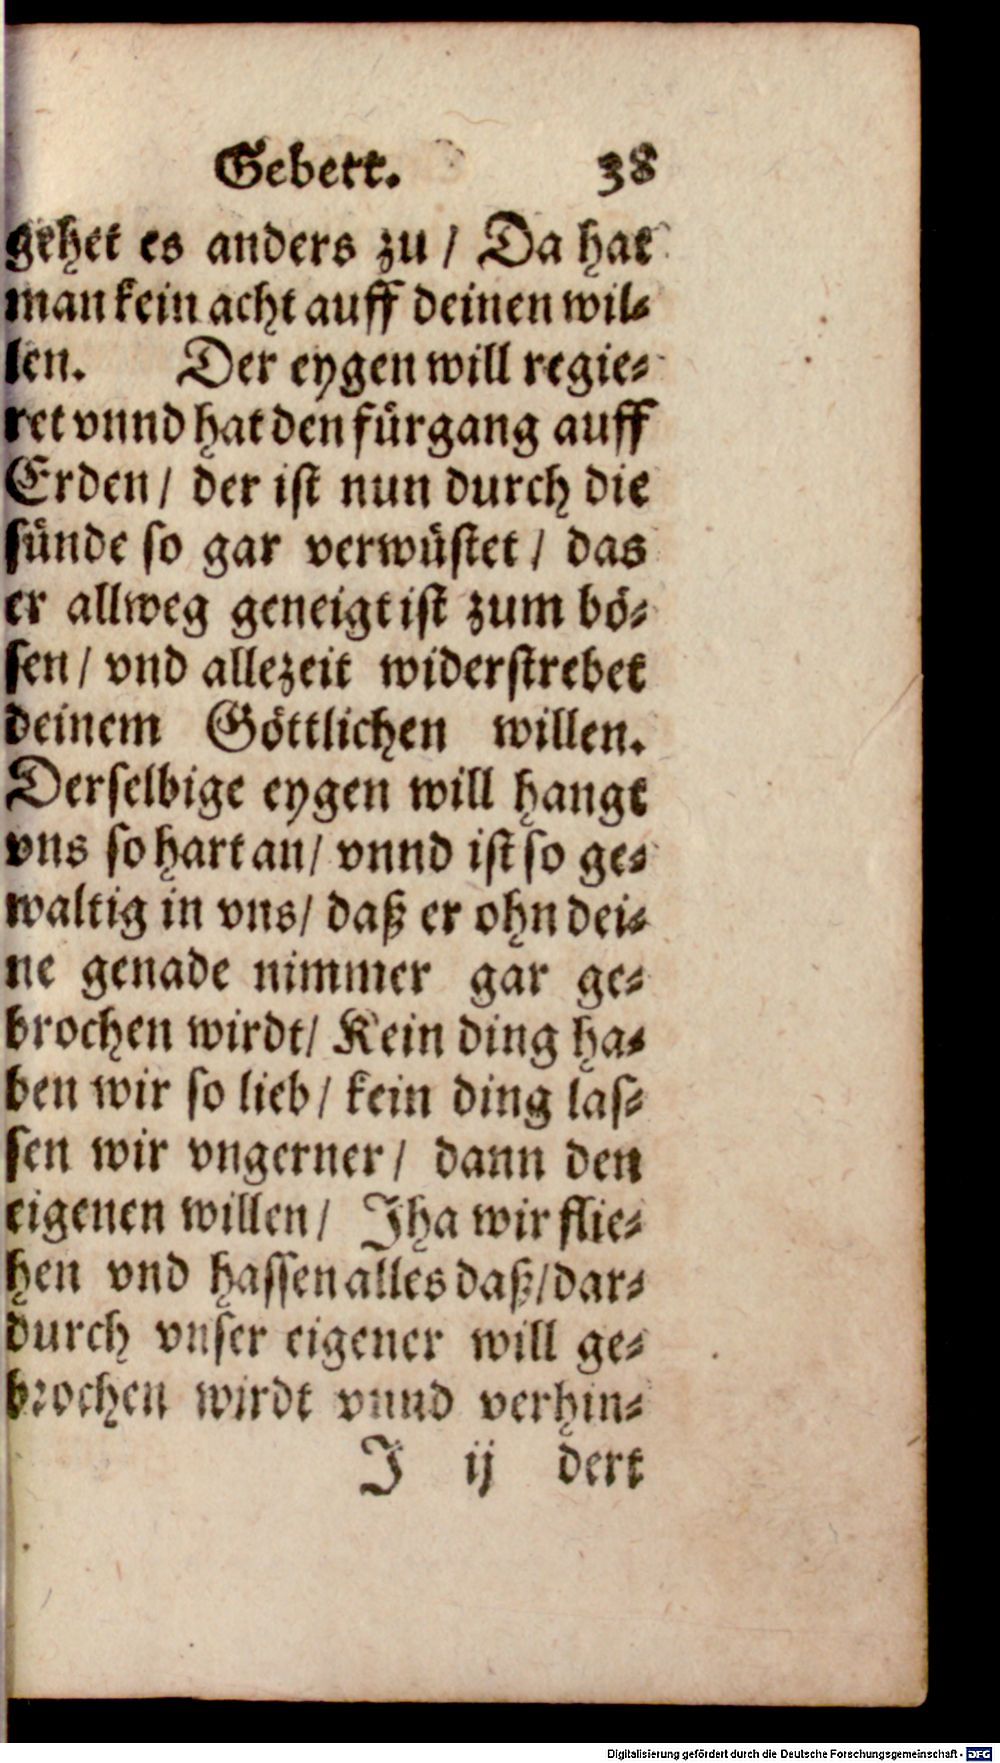 Gebett. 38
gehet es anders zu / Da hat
man kein acht auff deinen wil⸗
len. Der eygen will regie⸗
ret vnnd hat den fürgang auff
Erden / der ist nun durch die
sünde so gar verwüstet / das
er allweg geneigt ist zum bö⸗
sen / vnd allezeit widerstrebet
deinem Göttlichen willen.
Derselbige eygen will hangt
vns so hart an / vnnd ist so ge⸗
waltig in vns / daß er ohn dei⸗
ne genade nimmer gar ge⸗
brochen wirdt / Kein ding ha⸗
ben wir so lieb / kein ding las⸗
sen wir vngerner / dann den
eigenen willen / Jha wir flie⸗
hen vnd hassen alles daß / dar⸗
durch vnser eigener will ge⸗
brochen wirdt vnnd verhin⸗
J ij dert
Digitalisierung gefördert durch die Deutsche Forschungsgemeinschaft - DFG